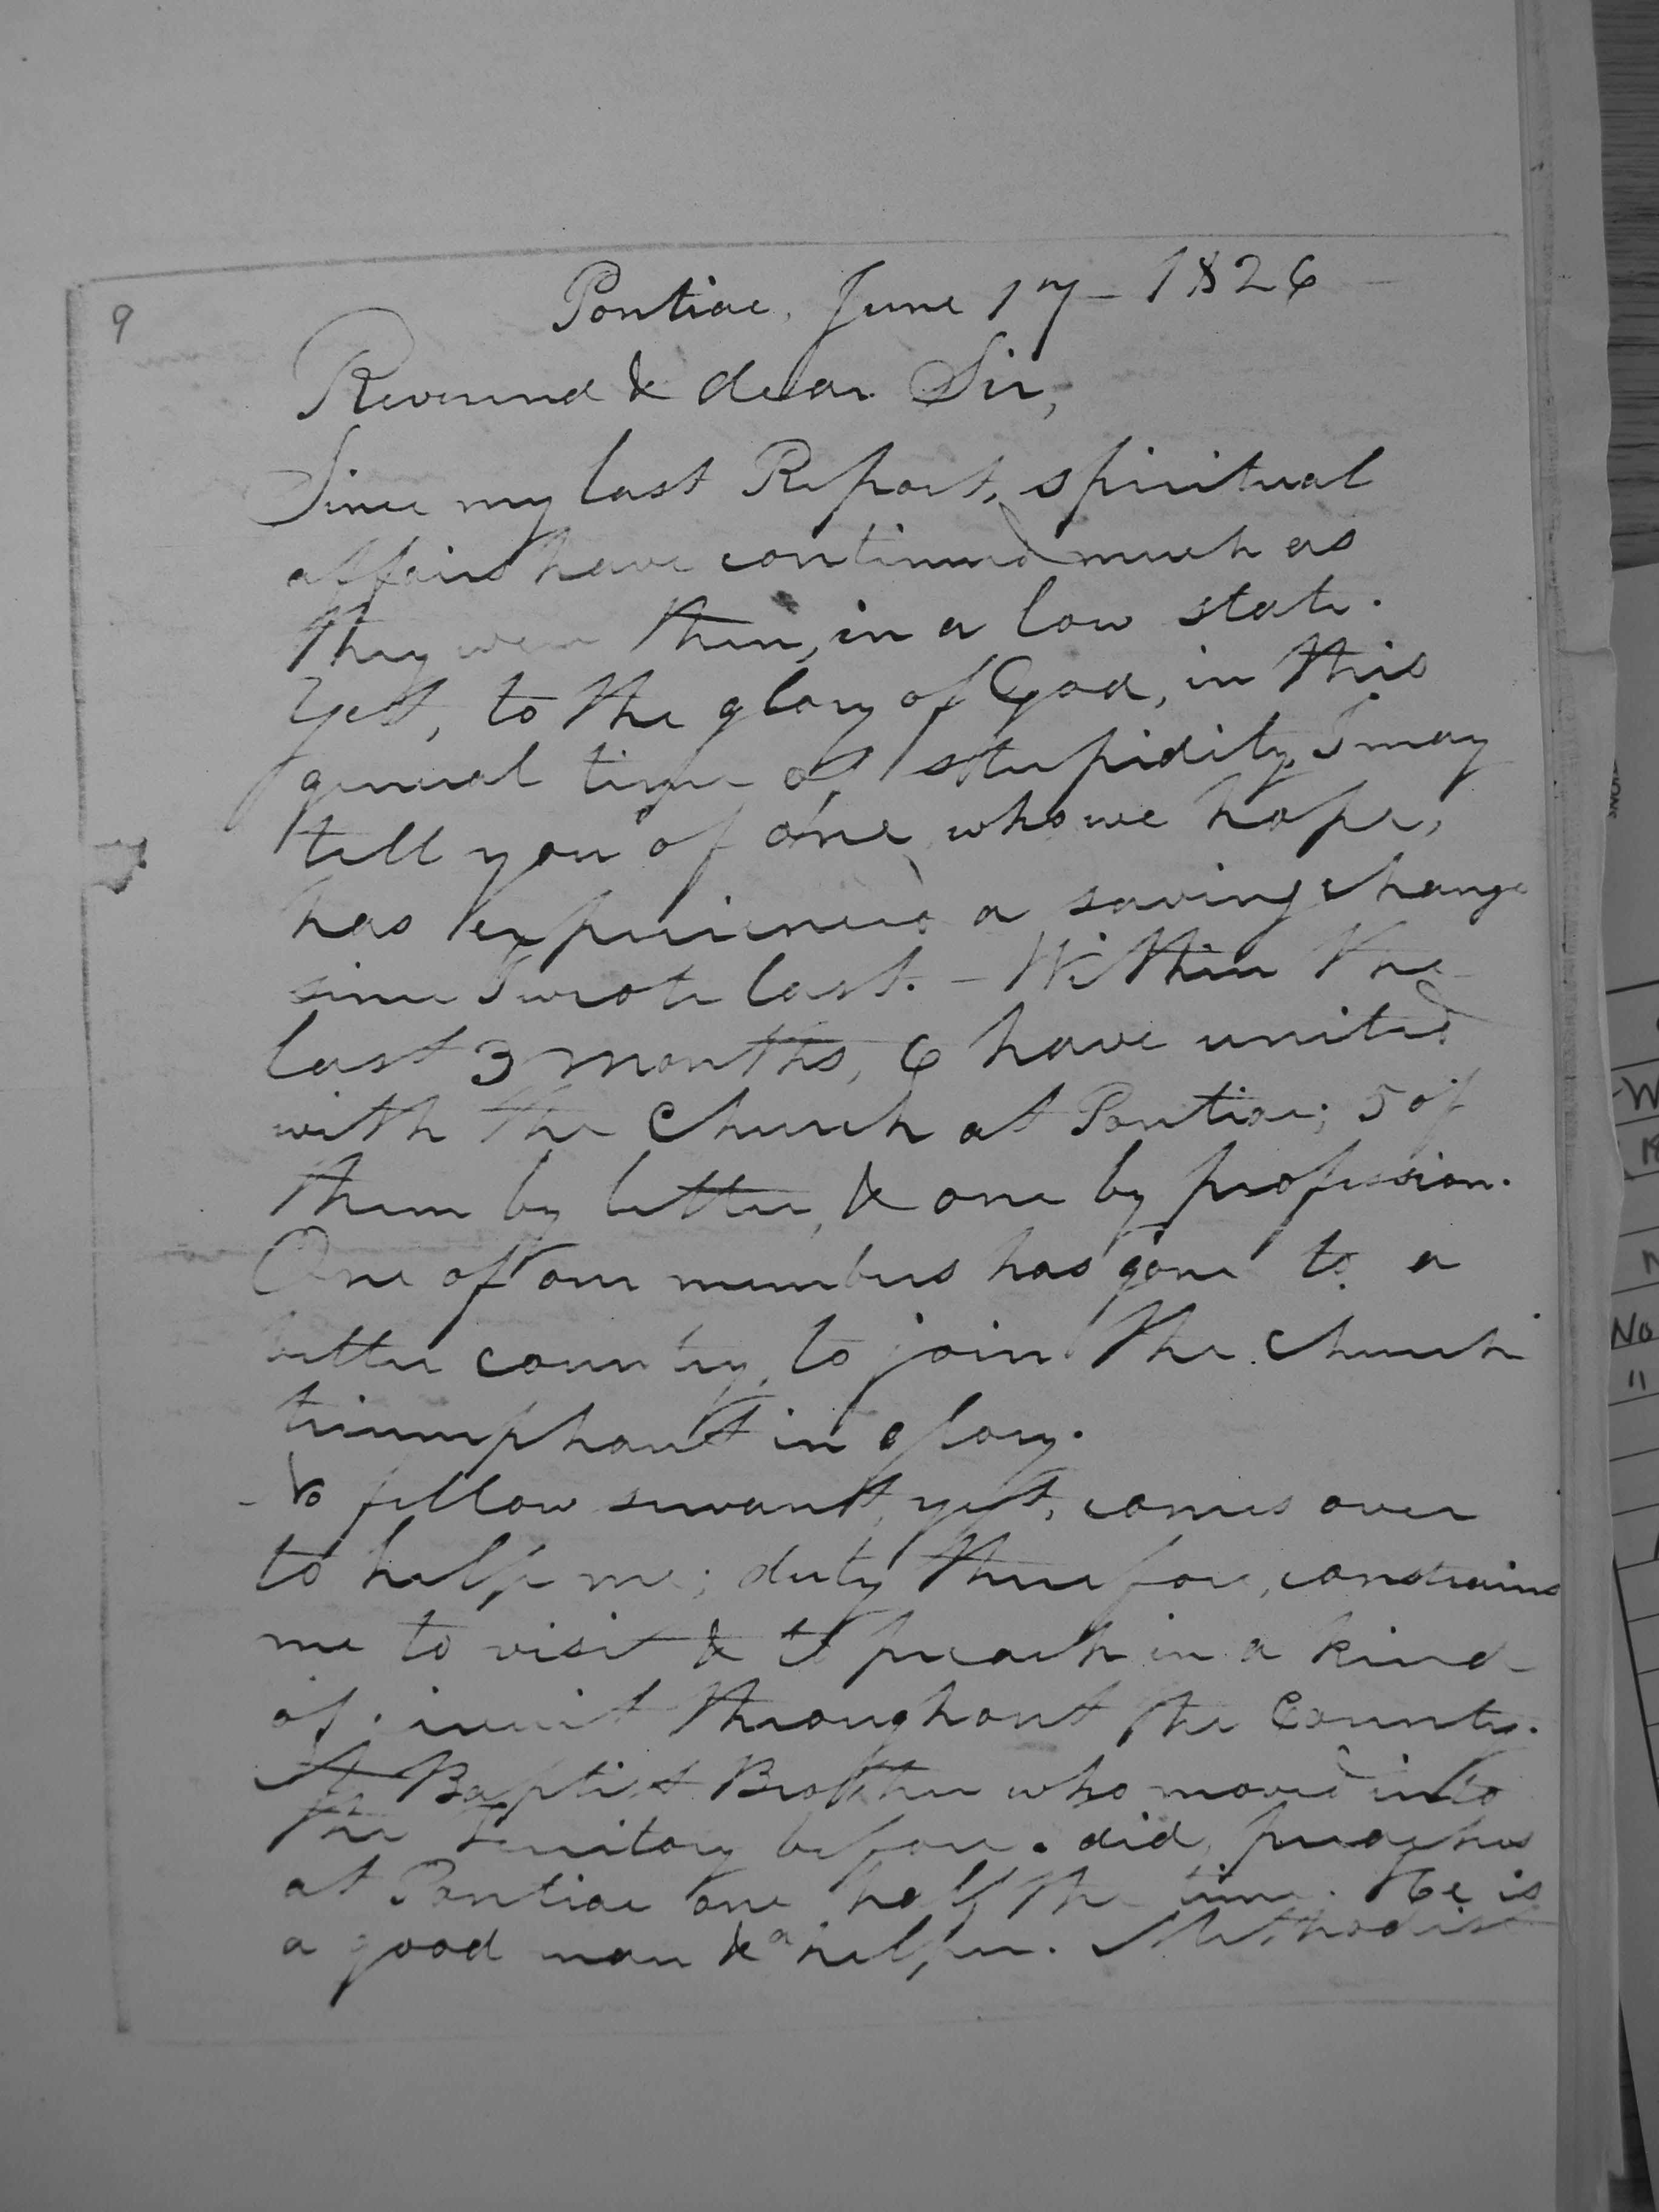 9
Pontiac, June 17 - 1826
Reverend & dear Sir,
Since my last Report, spiritual
affairs have continued much as
they were then, in a low state.
Yet, to the glory of God, in this
general time of stupidity, I may
tell you of one, who we hope,
has experienced a saving change
since I wrote last. - Within the
last 3 months, 6 have united
with the Church at Pontiac; 5 of
them by letter, & one by profession.
One of our members has gone to a
better country, to join the church
triumphant in glory.
- No fellow servant, yet, comes over
to help me; duty therefore, constrains
me to visit & to preach in a kind
of circuit throughout the County.
A Baptist Brother who moved into
the Territory before I did, preaches
at Pontiac one half the time. He is
a good man & a helper. Methodist
W
No
"